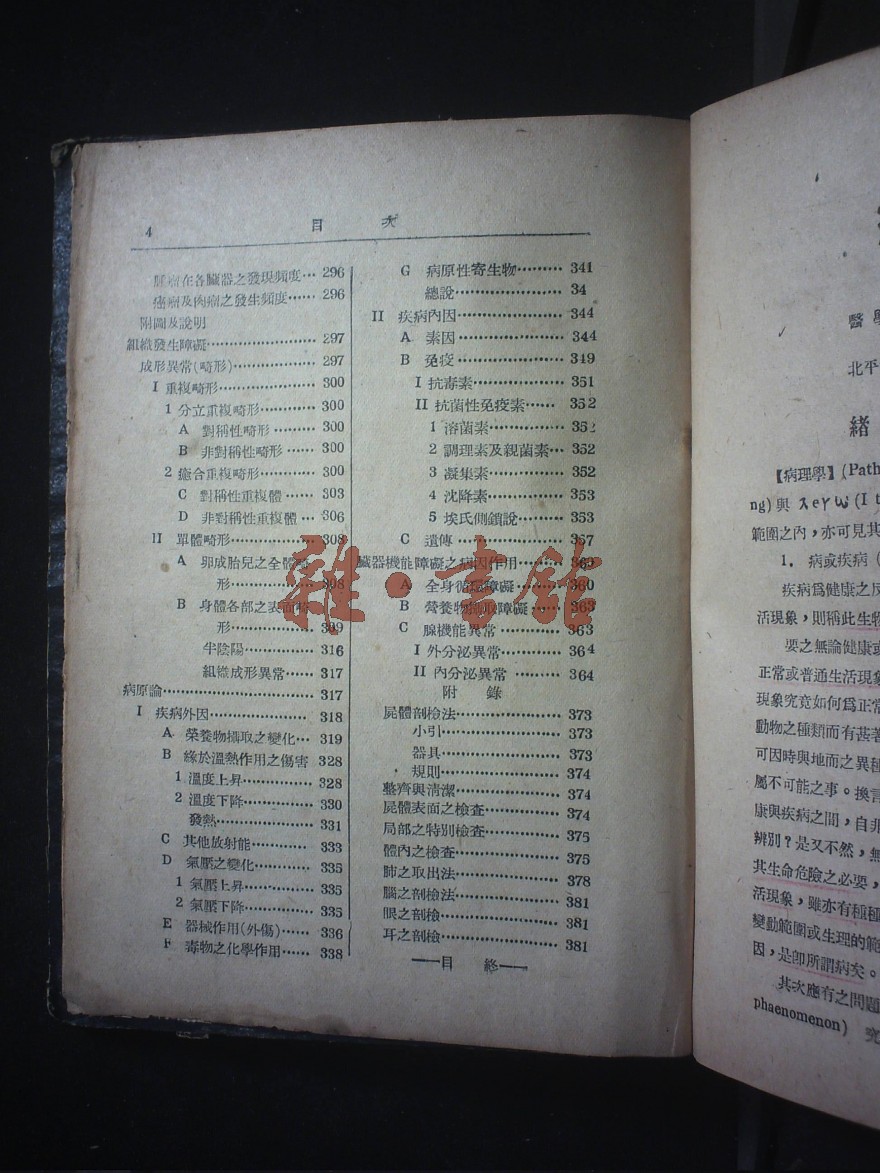 4 目 次
腫瘤在各臟器之發現頻度… 296
癌瘤及肉瘤之發生頻度…… 296
附圖及說明
組織發生障礙……………… 297
成形異常(畸形)…………… 297
I 重複畸形……………… 300
1 分立重複畸形………… 300
A 對稱性畸形……… 300
B 非對稱性畸形…… 300
2 癒合重複畸形………… 300
C 對稱性重複體…… 303
D 非對稱性重複體… 306
II 單體畸形……………… 308
A 卵成胎兒之全體畸
形……………… 308
B 身體各部之表面畸
形……………… 309
半陰陽…………… 316
組織成形異常…… 317
病原論……………………… 317
I 疾病外因……………… 318
A 榮養物攝取之變化… 319
B 緣於溫熱作用之傷害 328
1 溫度上昇…………… 328
2 溫度下降…………… 330
發熱……………… 331
C 其他放射能………… 333
D 氣壓之變化………… 335
1 氣壓上昇…………… 335
2 氣壓下降…………… 335
E 器械作用(外傷)…… 336
F 毒物之化學作用…… 338
G 病原性寄生物……… 341
總說……………… 34
II 疾病內因……………… 344
A 素因………………… 344
B 免疫………………… 349
I 抗毒素……………… 351
II 抗菌性免疫素…… 352
1 溶菌素…………… 352
2 調理素及親菌素… 352
3 凝集素…………… 352
4 沈降素…………… 353
5 埃氏側鎖說……… 353
C 遺傳………………… 357
臟器機能障礙之病因作用… 360
A 全身循環障礙……… 360
B 營養物攝取障礙…… 363
C 腺機能異常………… 363
I 外分泌異常………… 364
II 內分泌異常……… 364
附 錄
屍體剖檢法……………… 373
小引………………… 373
器具………………… 373
規則………………… 374
整齊與清潔……………… 374
屍體表面之檢查………… 374
局部之特別檢查………… 375
體內之檢查……………… 375
肺之取出法……………… 378
腦之剖檢法……………… 381
眼之剖檢………………… 381
耳之剖檢………………… 381
——目 終——
雜·書館
醫學
北平
緒
【病理學】(Path
ng)與 λεγω(I t
範圍之內，亦可見其
1. 病或疾病(
疾病爲健康之反
活現象，則稱此生物
要之無論健康或
正常或普通生活現象
現象究竟如何爲正常
動物之種類而有甚著
可因時與地而之異種
屬不可能之事。換言
康與疾病之間，自非
辨別？是又不然，無
其生命危險之必要，
活現象，雖亦有種種
變動範圍或生理的範
因，是卽所謂病矣。
其次應有之問題
phaenomenon) 究